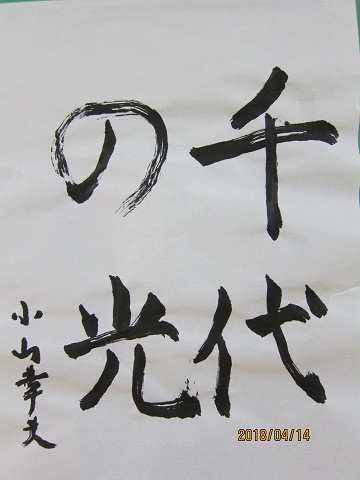 千代
の光
小山幸夫
2018/04/14